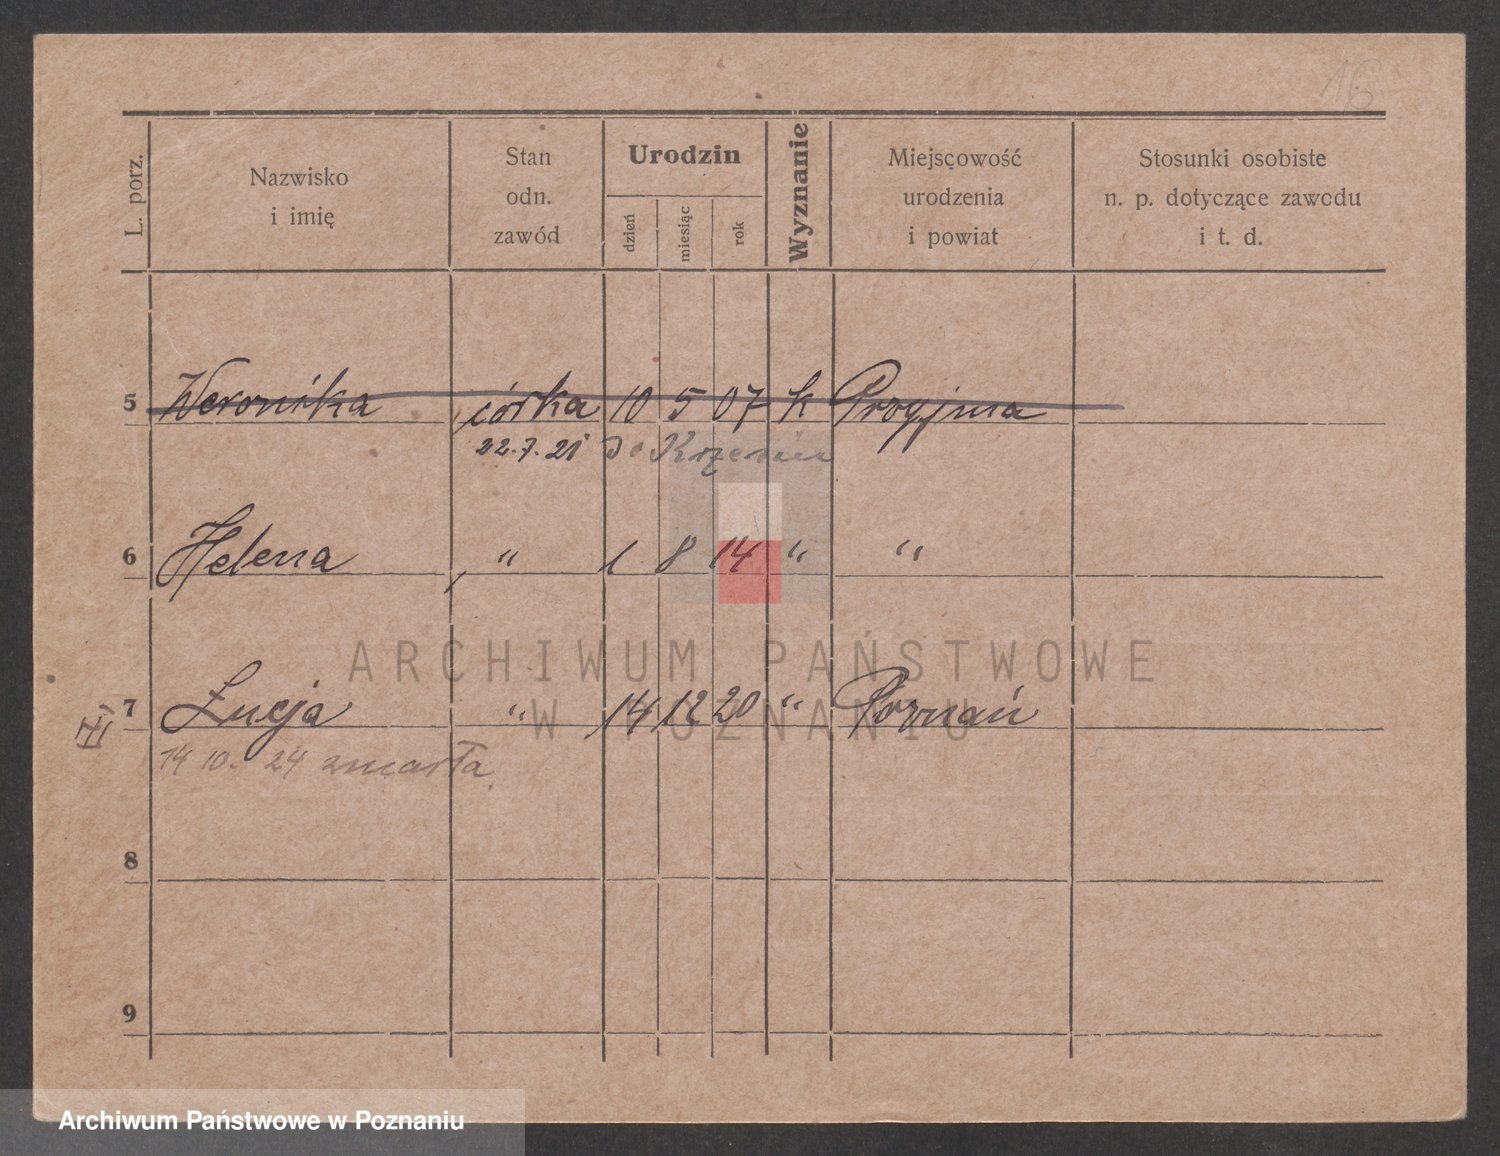 16
L. porz.
Nazwisko
i imię
Stan
odn.
zawód
Urodzin
dzień
miesiąc
rok
Wyznanie
Miejscowość
urodzenia
i powiat
Stosunki osobiste
n. p. dotyczące zawodu
i t. d.
5 Weronika córka 10 5 07 k
22.7.21 do
6 Helena " 1 8 14 " "
ARCHIWUM PAŃSTWOWE
7 Łucja " 14 12 20 " Poznań
W POZNANIU
14 10. 24 zmarła
8
9
Archiwum Państwowe w Poznaniu